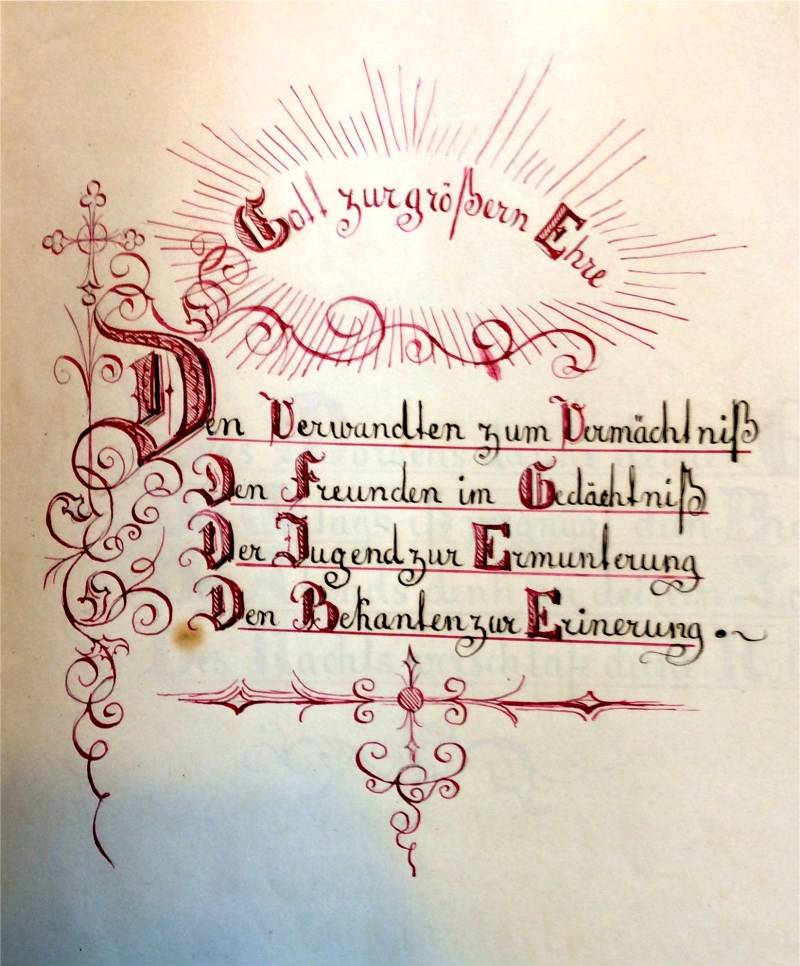 Gott zur größern Ehre
Den Verwandten zum Vermächtniß
Den Freunden im Gedächtniß
Der Jugend zur Ermunterung
Den Bekanten zur Erinerung .~